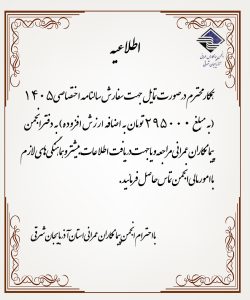 اطلاعیه
همکار محترم در صورت تمایل جهت سفارش سالنامه اختصاصی ۱۴۰۵
(به مبلغ ۲۹۵۰۰۰ تومان به اضافه ارزش افزوده) به دفتر انجمن
پیمانکاران عمرانی مراجعه و یا جهت دریافت اطلاعات بیشتر و هماهنگی های لازم
با امور مالی انجمن تماس حاصل فرمائید.
با احترام انجمن پیمانکاران عمرانی استان آذربایجان شرقی